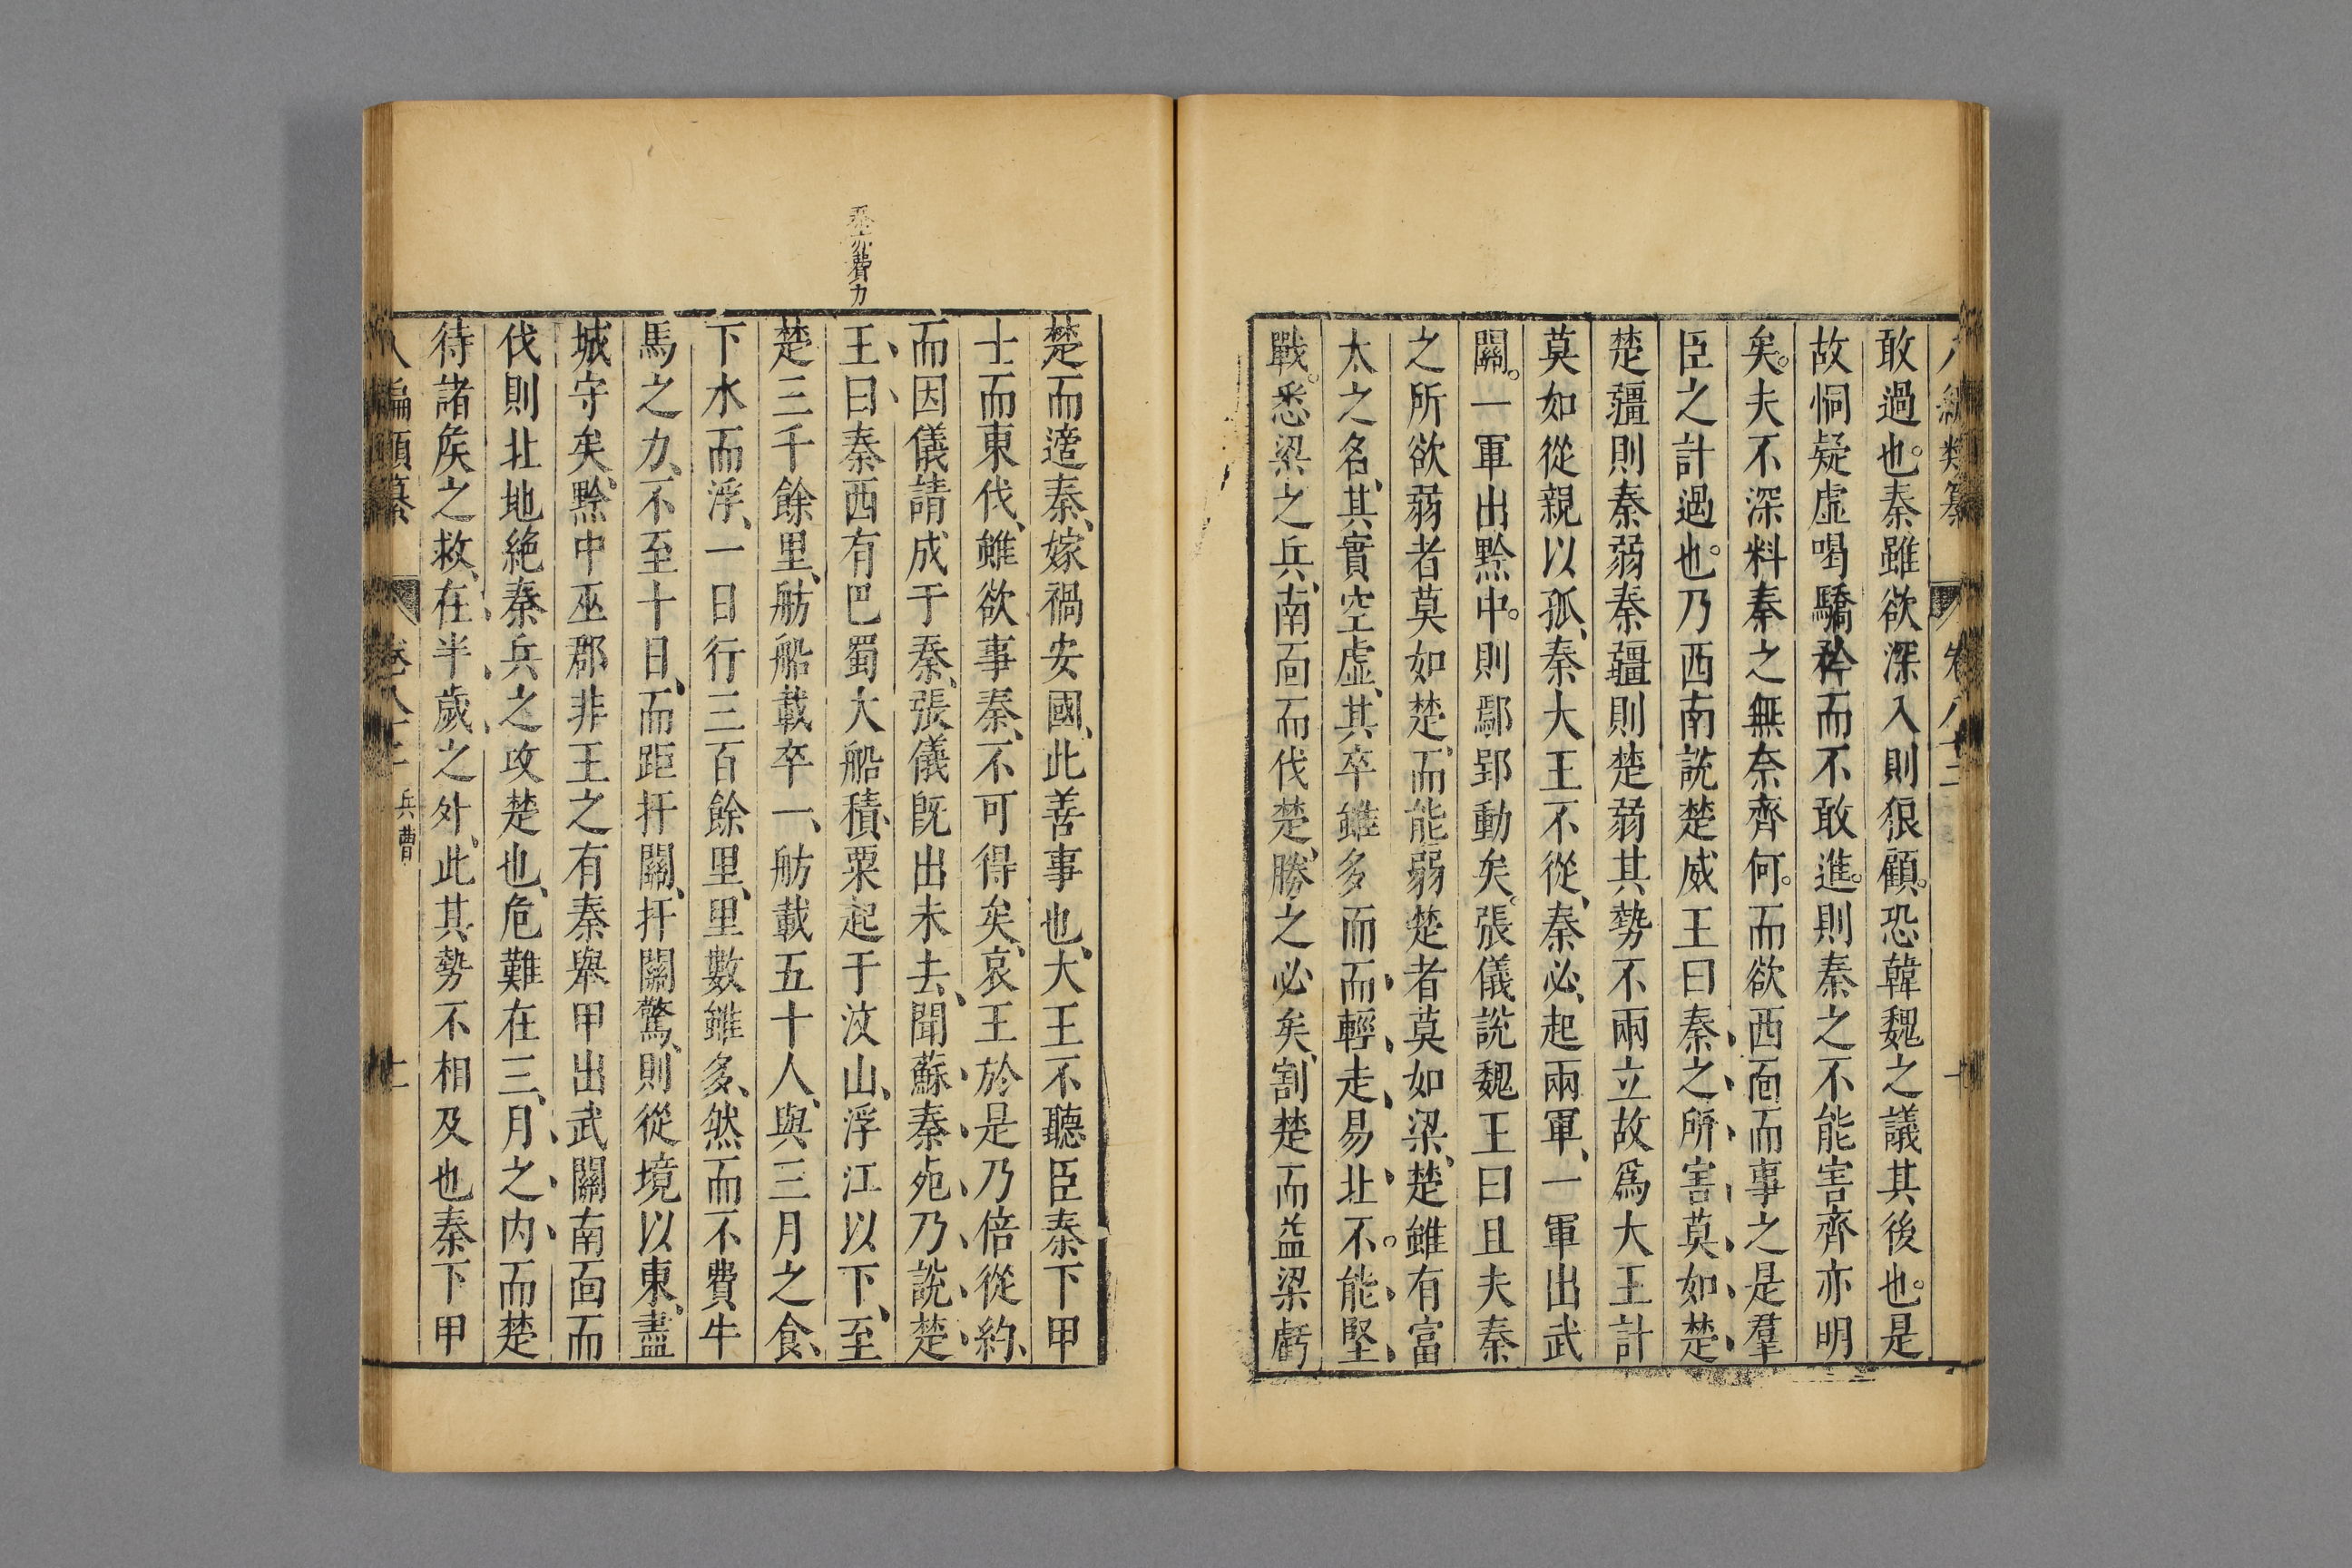 敢過也。秦雖欲深入則狼顧。恐韓魏之議其後也。是
故恫疑虛喝驕矜而不敢進。則秦之不能害齊亦明
矣。夫不深料秦之無奈齊何。而欲西面而事之是羣
臣之計過也。乃西南說楚威王曰秦之所害莫如楚
楚疆則秦弱秦疆則楚弱其勢不兩立故爲大王計
莫如從親以孤、秦大王不從、秦必、起兩軍、一軍出武
關。一軍出黔中。則鄢郢動矣。張儀說魏王曰且夫秦
之所欲弱者莫如楚、而能弱楚者莫如梁、楚雖有富
太之名、其實空虛、其卒雖多而而輕走易北不能堅
戰。悉梁之兵、南面而伐楚、勝之必矣、割楚而益梁虧
楚而適秦、嫁禍安國、此善事也、大王不聽臣秦下甲
士而東伐、雖欲事秦、不可得矣、哀王於是乃倍從約、
而因儀請成于秦、張儀旣出未去、聞蘇秦死乃說楚
王、曰、秦西有巴蜀大船積、粟起于汶山、浮江以下、至
楚三千餘里、舫船載卒一、舫載五十人、與三月之食、
下水而浮、一日行三百餘里、里數雖多、然而不費牛
馬之力、不至十日、而距扞關、扞關驚、則從境以東、盡
城守矣。黔中巫郡非王之有秦舉甲出武關南面而
伐則北地絶秦兵之攻楚也、危難在三、月之內而楚
待諸矦之救、在半歲之外、此其勢不相及也秦下甲
亦費力
八編類纂 卷八十二 兵曹 十一